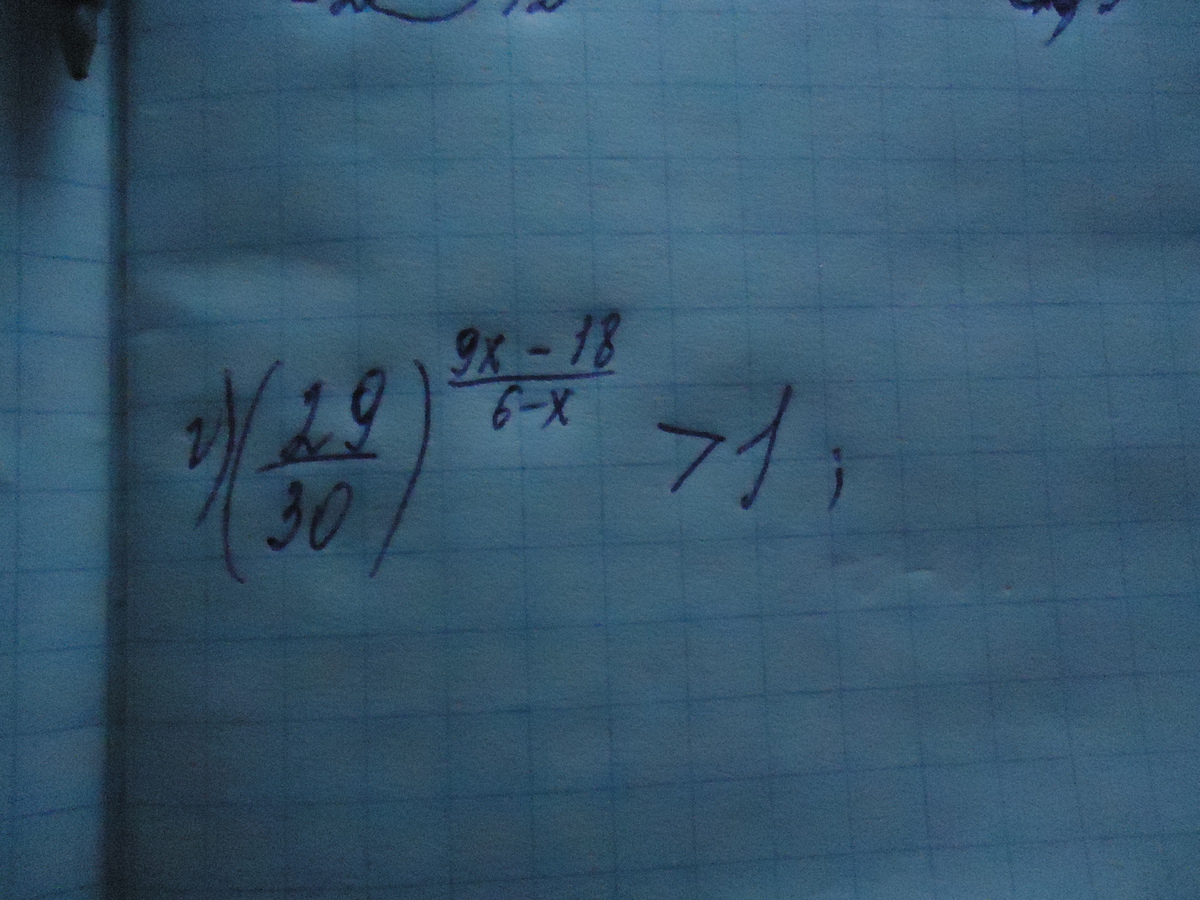 г) (29/30)^((9x - 18)/(6 - x)) > 1 ;